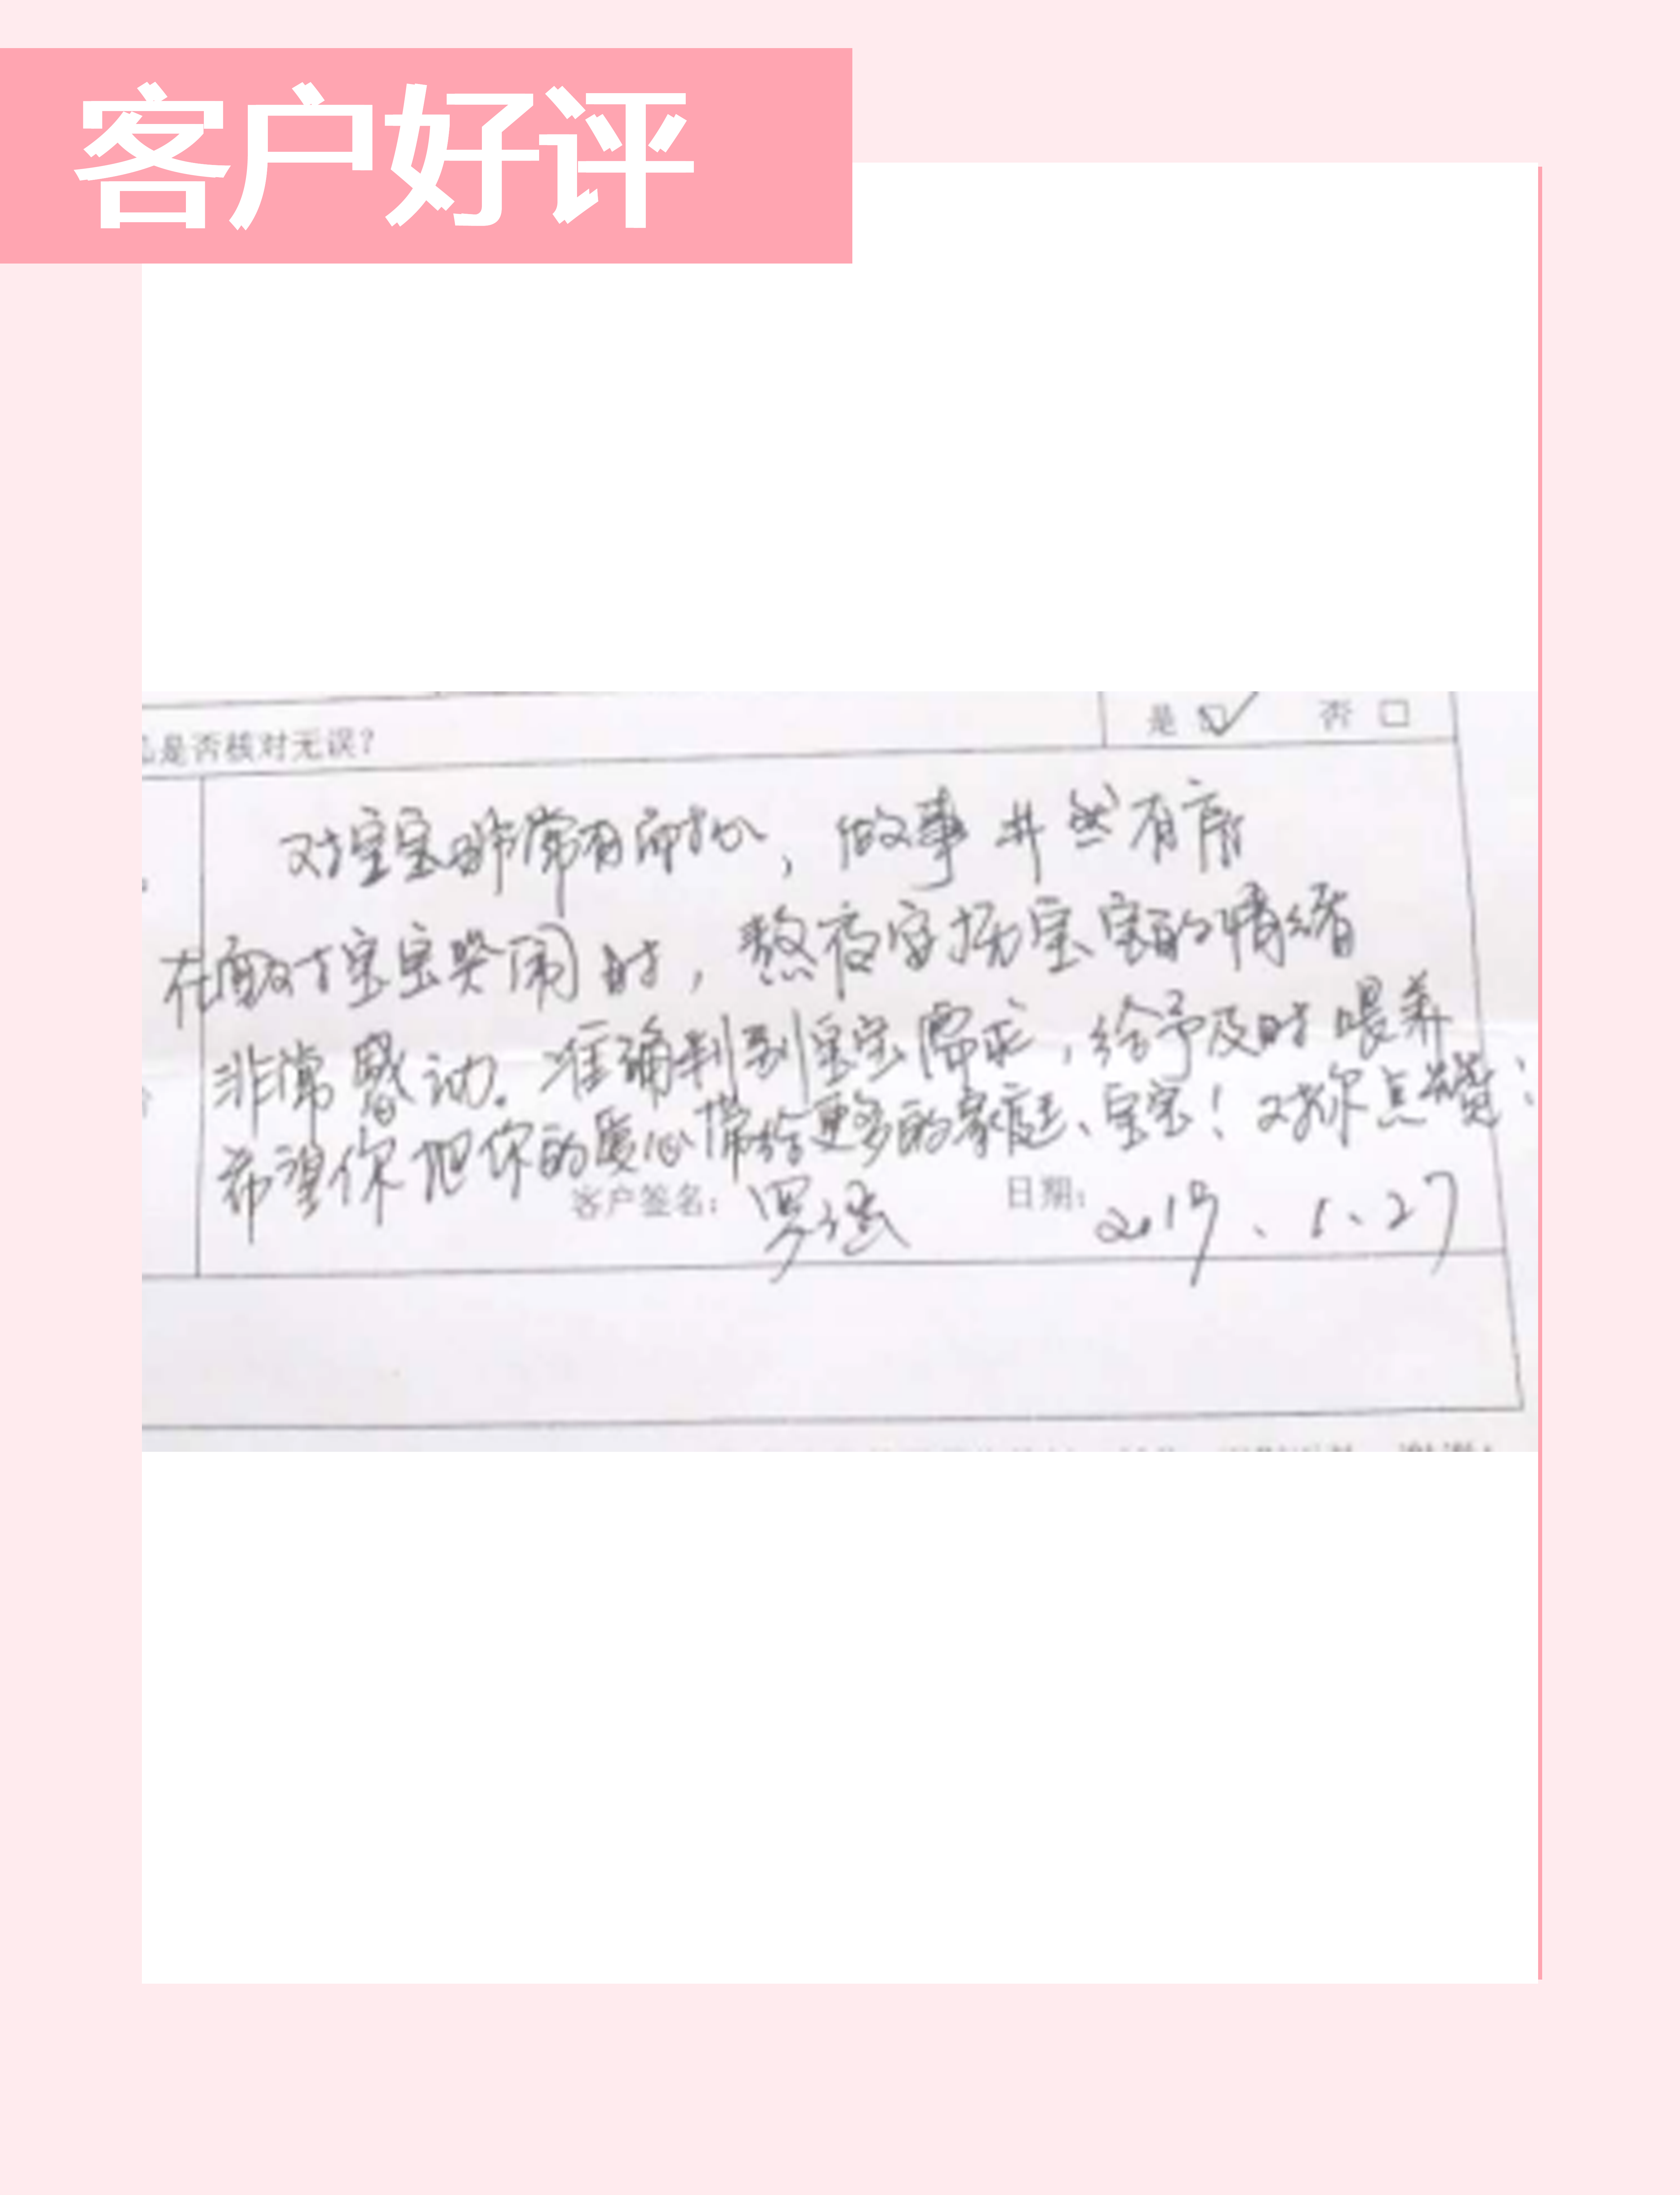 客户好评
是否核对无误?
是 否
对宝宝非常有耐心，做事井然有序
在面对宝宝哭闹时，熬夜安抚宝宝的情绪
非常感动。准确判别宝宝需求，给予及时喂养
希望你把你的爱心带给更多的家庭、宝宝！对你点赞！
客户签名： 罗 日期： 2019、1、27